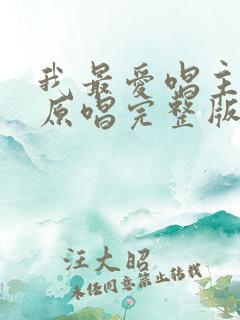 我最爱唱主
原唱完整版
汪大昭
未经同意禁止转载